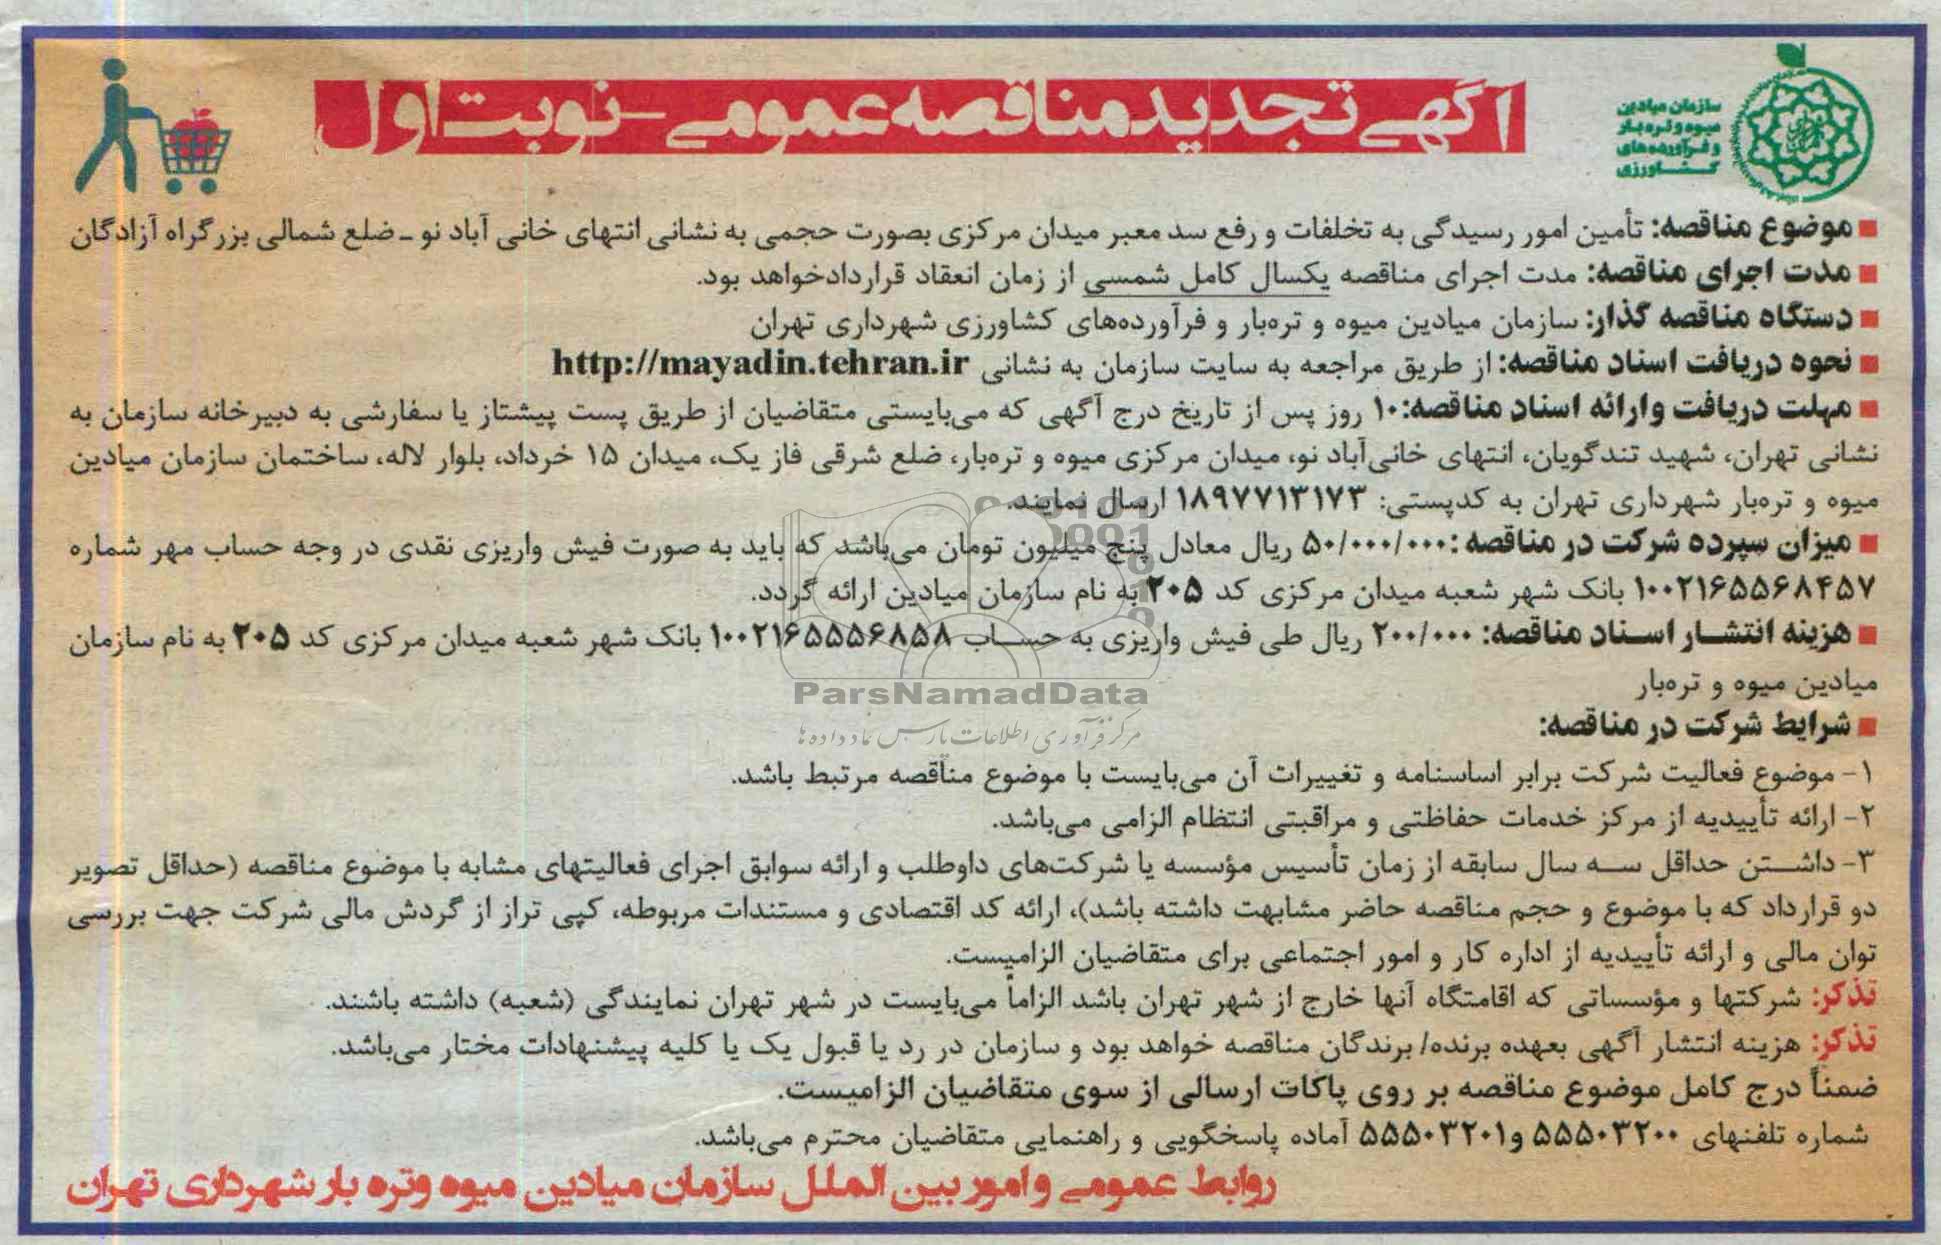 آگهی تجدید مناقصه عمومی - نوبت اول
سازمان میادین
میوه و تره بار
و فرآورده های
کشاورزی
■ موضوع مناقصه: تأمین امور رسیدگی به تخلفات و رفع سد معبر میدان مرکزی بصورت حجمی به نشانی انتهای خانی آباد نو ـ ضلع شمالی بزرگراه آزادگان
■ مدت اجرای مناقصه: مدت اجرای مناقصه یکسال کامل شمسی از زمان انعقاد قراردادخواهد بود.
■ دستگاه مناقصه گذار: سازمان میادین میوه و تره‌بار و فرآورده‌های کشاورزی شهرداری تهران
■ نحوه دریافت اسناد مناقصه: از طریق مراجعه به سایت سازمان به نشانی http://mayadin.tehran.ir
■ مهلت دریافت وارائه اسناد مناقصه: ۱۰ روز پس از تاریخ درج آگهی که می‌بایستی متقاضیان از طریق پست پیشتاز یا سفارشی به دبیرخانه سازمان به
نشانی تهران، شهید تندگویان، انتهای خانی‌آباد نو، میدان مرکزی میوه و تره‌بار، ضلع شرقی فاز یک، میدان ۱۵ خرداد، بلوار لاله، ساختمان سازمان میادین
میوه و تره‌بار شهرداری تهران به کدپستی: ۱۸۹۷۷۱۳۱۷۳ ارسال نمایند.
■ میزان سپرده شرکت در مناقصه: ۵۰/۰۰۰/۰۰۰ ریال معادل پنج میلیون تومان می‌باشد که باید به صورت فیش واریزی نقدی در وجه حساب مهر شماره
۱۰۰۲۱۶۵۵۶۸۴۵۷ بانک شهر شعبه میدان مرکزی کد ۲۰۵ به نام سازمان میادین ارائه گردد.
■ هزینه انتشار اسناد مناقصه: ۲۰۰/۰۰۰ ریال طی فیش واریزی به حساب ۱۰۰۲۱۶۵۵۵۶۸۵۸ بانک شهر شعبه میدان مرکزی کد ۲۰۵ به نام سازمان
میادین میوه و تره‌بار
ParsNamadData
مرکز فرآوری اطلاعات پارس نماد داده ها
■ شرایط شرکت در مناقصه:
۱- موضوع فعالیت شرکت برابر اساسنامه و تغییرات آن می‌بایست با موضوع مناقصه مرتبط باشد.
۲- ارائه تأییدیه از مرکز خدمات حفاظتی و مراقبتی انتظام الزامی می‌باشد.
۳- داشتن حداقل سه سال سابقه از زمان تأسیس مؤسسه یا شرکت‌های داوطلب و ارائه سوابق اجرای فعالیتهای مشابه با موضوع مناقصه (حداقل تصویر
دو قرارداد که با موضوع و حجم مناقصه حاضر مشابهت داشته باشد)، ارائه کد اقتصادی و مستندات مربوطه، کپی تراز از گردش مالی شرکت جهت بررسی
توان مالی و ارائه تأییدیه از اداره کار و امور اجتماعی برای متقاضیان الزامیست.
تذکر: شرکتها و مؤسساتی که اقامتگاه آنها خارج از شهر تهران باشد الزاماً می‌بایست در شهر تهران نمایندگی (شعبه) داشته باشند.
تذکر: هزینه انتشار آگهی بعهده برنده/ برندگان مناقصه خواهد بود و سازمان در رد یا قبول یک یا کلیه پیشنهادات مختار می‌باشد.
ضمناً درج کامل موضوع مناقصه بر روی پاکات ارسالی از سوی متقاضیان الزامیست.
شماره تلفنهای ۵۵۵۰۳۲۰۰ و ۵۵۵۰۳۲۰۱ آماده پاسخگویی و راهنمایی متقاضیان محترم می‌باشد.
روابط عمومی و امور بین الملل سازمان میادین میوه وتره بار شهرداری تهران